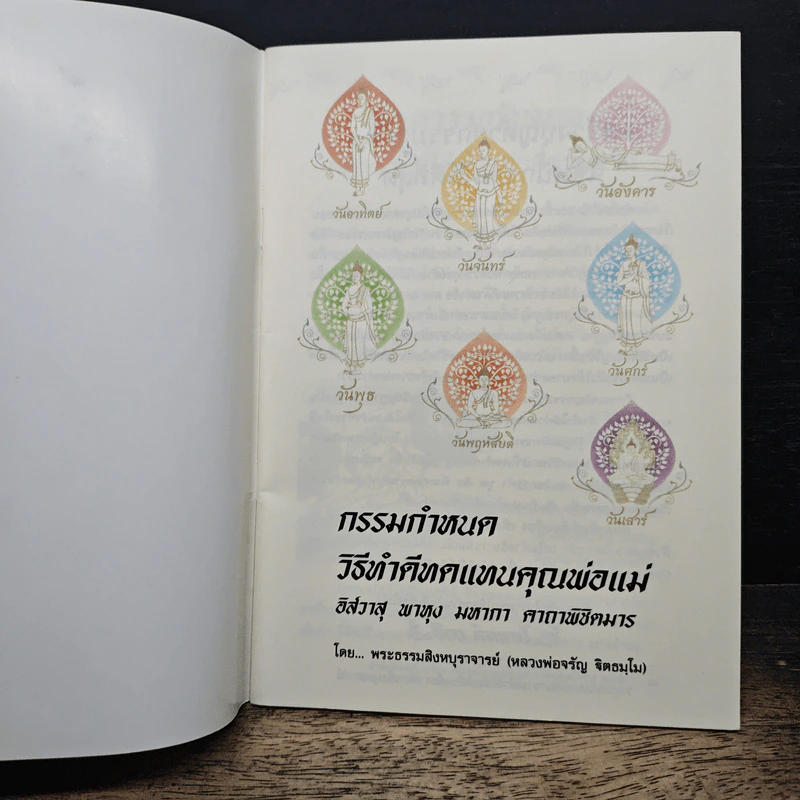 วันอาทิตย์
วันจันทร์
วันอังคาร
วันพุธ
วันพฤหัสบดี
วันศุกร์
วันเสาร์
กรรมกำหนด
วิธีทำดีทดแทนคุณพ่อแม่
อิสวาสุ พาหุง มหากา คาถาพิชิตมาร
โดย... พระธรรมสิงหบุราจารย์ (หลวงพ่อจรัญ ฐิตธมฺโม)